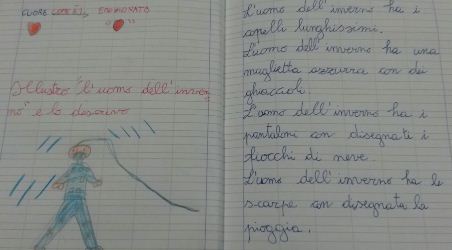 CUORE EMOZIONATO
Illustro "l'uomo dell'inver
no" e lo descrivo
L'uomo dell'inverno ha i
capelli lunghissimi.
L'uomo dell'inverno ha una
maglietta azzurra con dei
ghiaccioli.
L'uomo dell'inverno ha i
pantaloni con disegnati i
fiocchi di neve
L'uomo dell'inverno ha le
scarpe con disegnata la
pioggia.